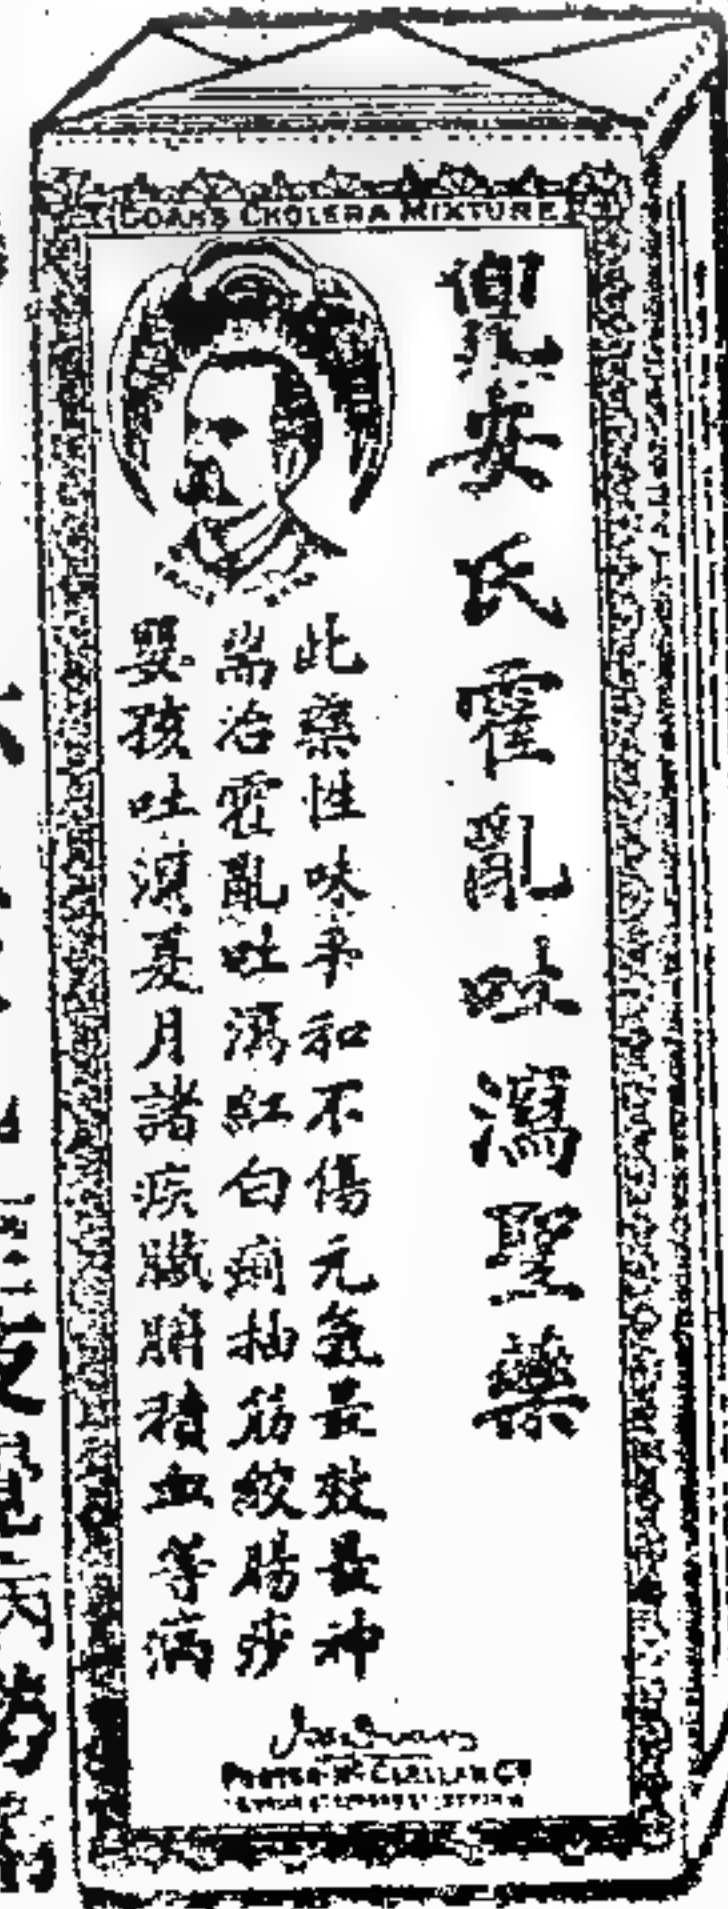 DOANS CHOLERA MIXTURE
兜安氏霍亂吐瀉聖藥
此藥性味平和不傷元氣最效最神
耑治霍亂吐瀉紅白痢抽筋絞腸痧
嬰孩吐瀉夏月諸疾臟腑積血等病
FOSTER-McCLELLAN Cº